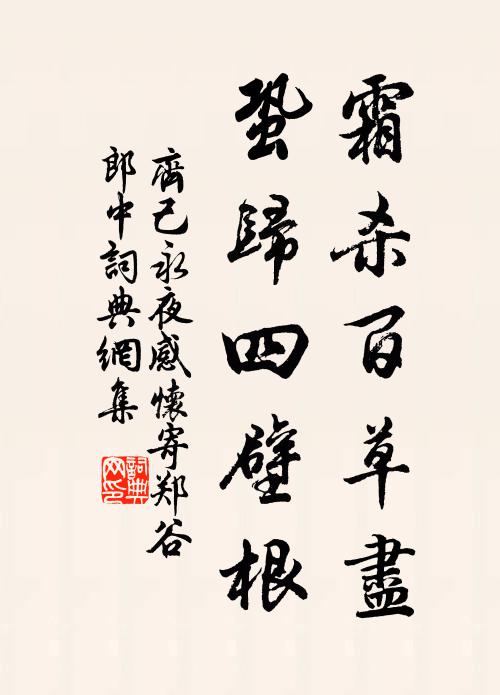 霜杀百草盡
蛩歸四壁根
齊己永夜感懷寄郑谷
郎中詞典網集
詞典
网印